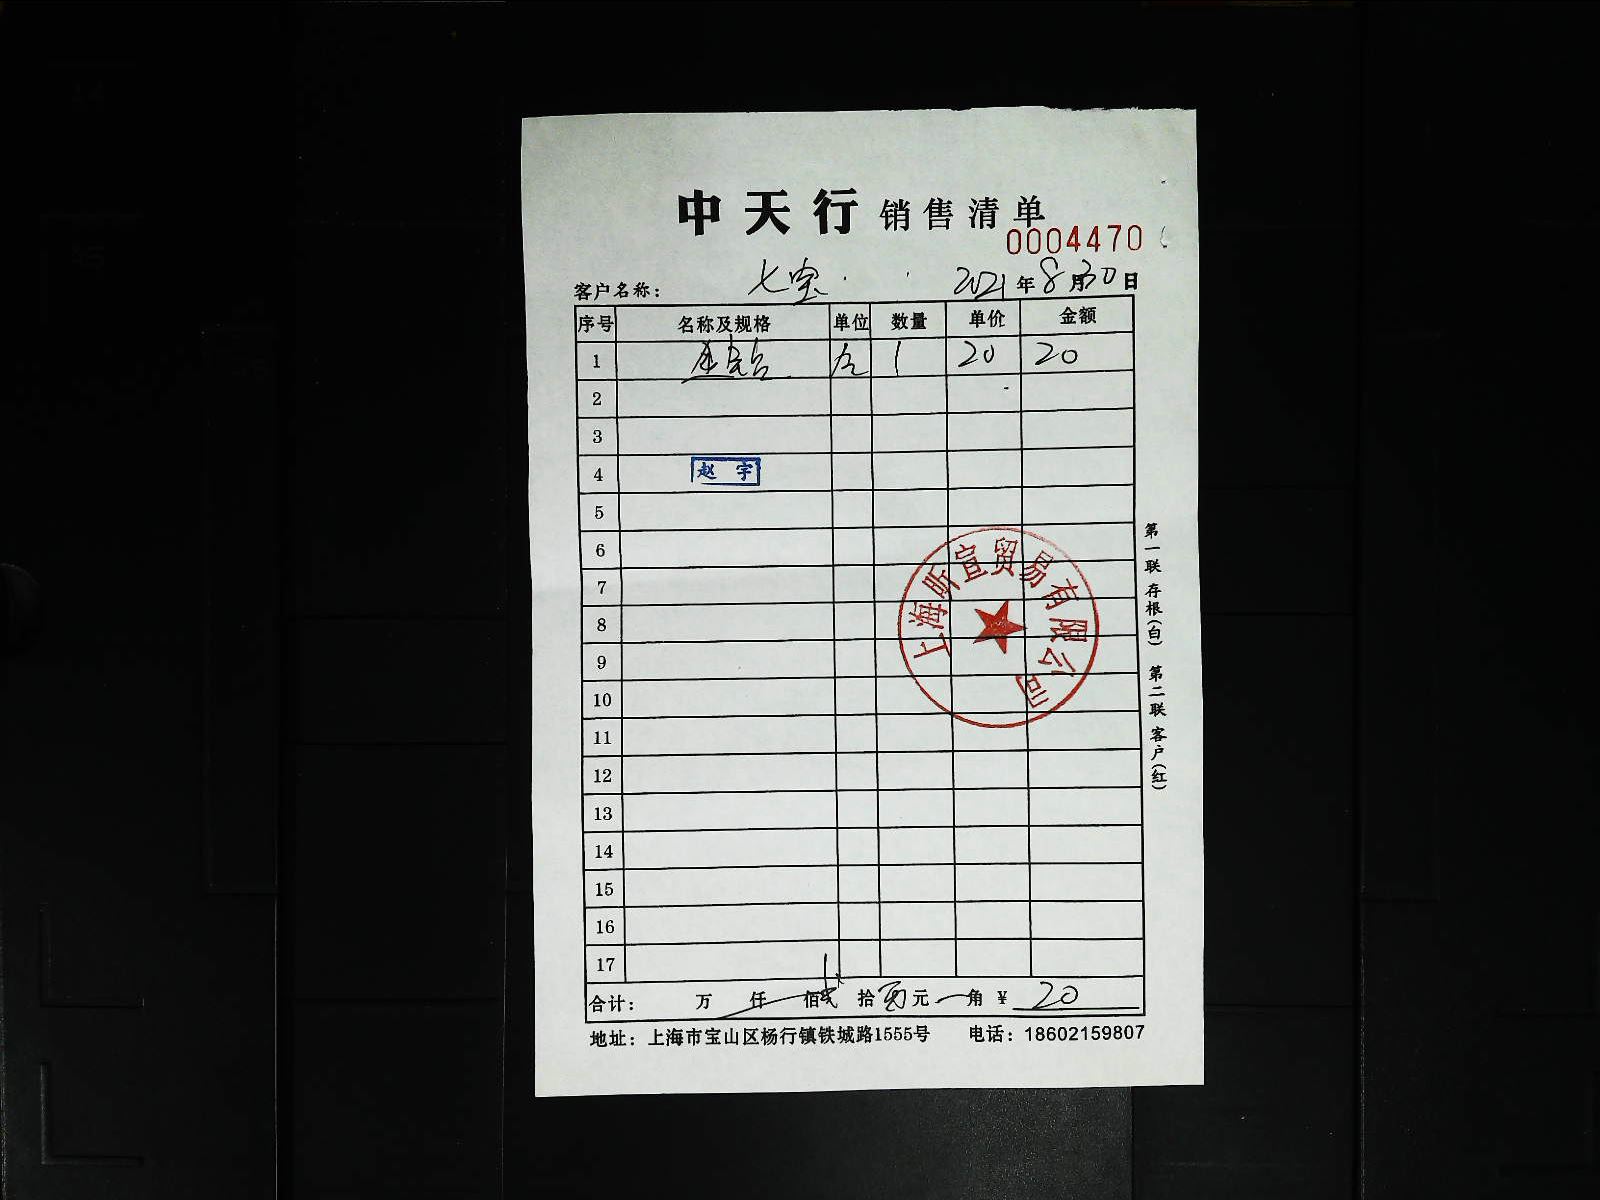 中天行 销售清单
0004470
客户名称： 七宝 2021年8月30日
序号 名称及规格 单位 数量 单价 金额
1 1 20 20
2
3
4 赵宇
5
6
7
8
9
10
11
12
13
14
15
16
17
上海昕宣贸易有限公司
合计： 万 仟 佰 贰 拾 元 角 ¥ 20
地址：上海市宝山区杨行镇铁城路1555号 电话：18602159807
第一联 存根(白) 第二联 客户(红)